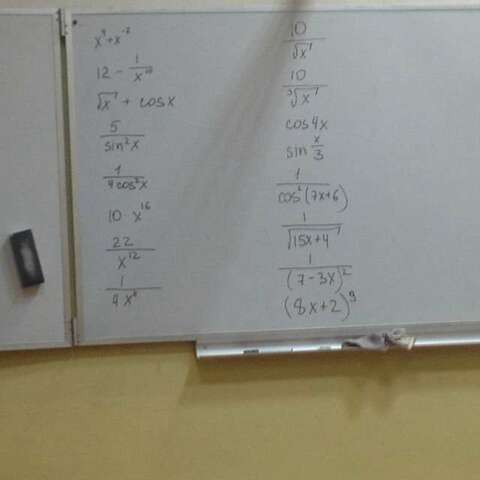 x⁴+x⁻²
12 - 1/x¹⁰
√x + cosx
5/sin²x
1/4cos²x
10 · x¹⁶
22/x¹²
1/4x⁸
10/√x
10/³√x
cos4x
sin x/3
1/cos²(7x+6)
1/√15x+4
1/(7-3x)²
(8x+2)⁹